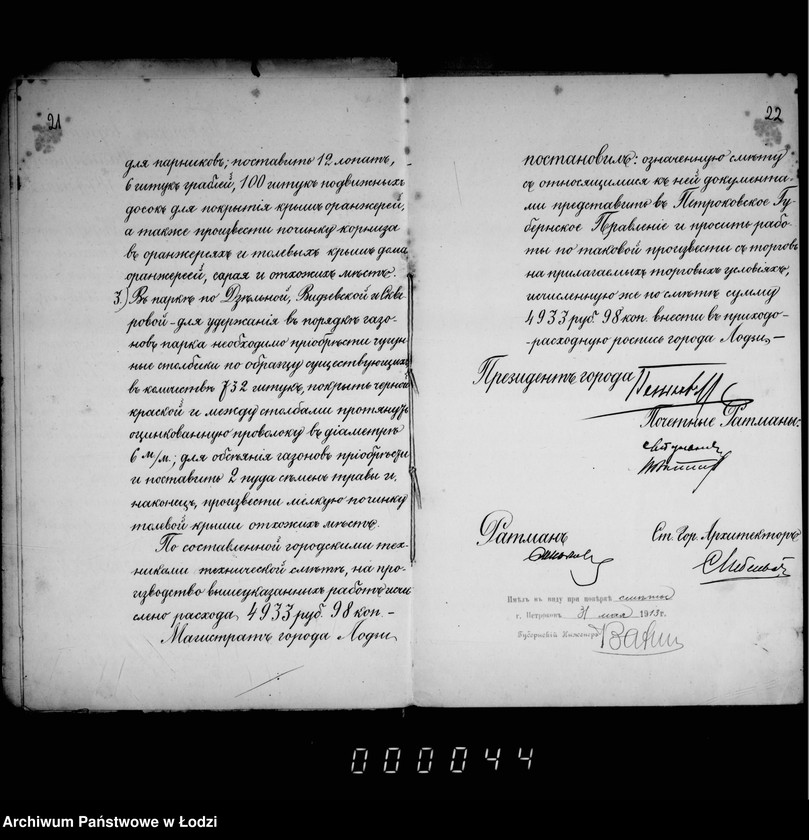 21
для парниковъ; поставить 12 лопатъ,
6 штукъ граблей, 100 штукъ подвижныхъ
досокъ для покрытія крышъ оранжерей,
а также произвести починку корниза
въ оранжереяхъ и толевыхъ крышъ дома
оранжерей, сарая и отхожихъ мѣстъ.
3.) Въ паркѣ по Дзѣльной, Видзевской и Скве-
ровой - для удержанія въ порядкѣ газо-
новъ парка необходимо пріобрѣсти чугун-
ные столбики по образцу существующихъ
въ количествѣ 732 штукъ, покрыть черной
краской и между столбами протянуть
оцинкованную проволоку въ діаметрѣ
6 м/м.; для обсѣянія газоновъ пріобрѣсти
и поставить 2 пуда сѣменъ травы и,
наконецъ, произвести мелкую починку
толевой крыши отхожихъ мѣстъ.
По составленной городскими тех-
никами технической смѣтѣ, на про-
изводство вышеуказанныхъ работъ исчи
слено расхода 4933 руб. 98 коп. -
Магистратъ города Лодзи
22
постановилъ: означенную смѣту
съ относящимися къ ней документа-
ми представить въ Петроковское Гу-
бернское Правленіе и просить рабо-
ты по таковой произвести съ торговъ
на прилагаемыхъ торговыхъ условіяхъ,
исчисленную же по смѣтѣ сумму
4933 руб. 98 коп. внести въ приходо-
-расходную роспись города Лодзи, -
Президентъ города
Почетные Ратманы:
Ратманъ
Ст. Гор. Архитекторъ
Имѣлъ въ виду при повѣркѣ смѣты
г. Петроковъ 31 мая 1913 г.
Губернскій Инженеръ
000044
Archiwum Państwowe w Łodzi